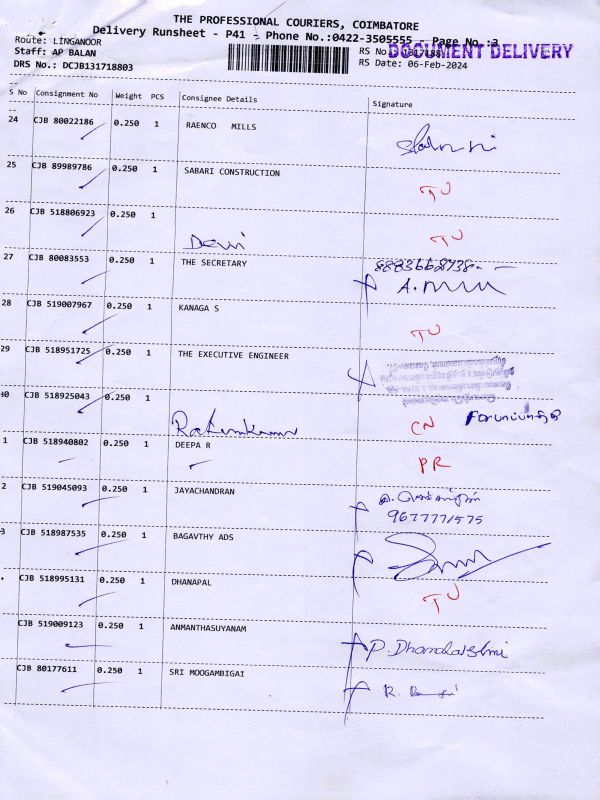 THE PROFESSIONAL COURIERS, COIMBATORE
Delivery Runsheet - P41 - Phone No.:0422-3505555 - Page No.:3
Route: LINGANOOR
Staff: AP BALAN
DRS No.: DCJB131718803
RS No.
DOCUMENT DELIVERY
RS Date: 06-Feb-2024
S No Consignment No Weight PCS Consignee Details Signature
24 CJB 80022186 0.250 1 RAENCO MILLS
25 CJB 89989786 0.250 1 SABARI CONSTRUCTION TU
26 CJB 518806923 0.250 1 Devi TU
27 CJB 80083553 0.250 1 THE SECRETARY
28 CJB 519007967 0.250 1 KANAGA S TU
29 CJB 518951725 0.250 1 THE EXECUTIVE ENGINEER
CJB 518925043 0.250 1 CN
1 CJB 518940802 0.250 1 DEEPA R PR
2 CJB 519045093 0.250 1 JAYACHANDRAN
9677771575
3 CJB 518987535 0.250 1 BAGAVTHY ADS
CJB 518995131 0.250 1 DHANAPAL TU
CJB 519009123 0.250 1 ANMANTHASUYANAM P. Dhanalakshmi
CJB 80177611 0.250 1 SRI MOOGAMBIGAI